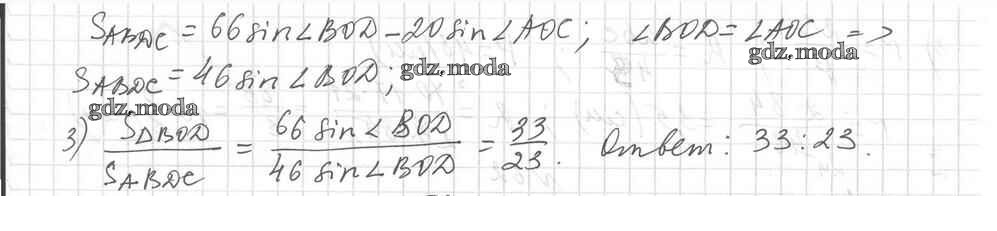 S_{ABDC} = 66 sin∠BOD − 20 sin∠AOC; ∠BOD = ∠AOC =>
gdz.moda
S_{ABDC} = 46 sin∠BOD; gdz.moda
gdz.moda
3) S_{ΔBOD}/S_{ABDC} = 66 sin∠BOD/46 sin∠BOD = 33/23. Ответ: 33:23.